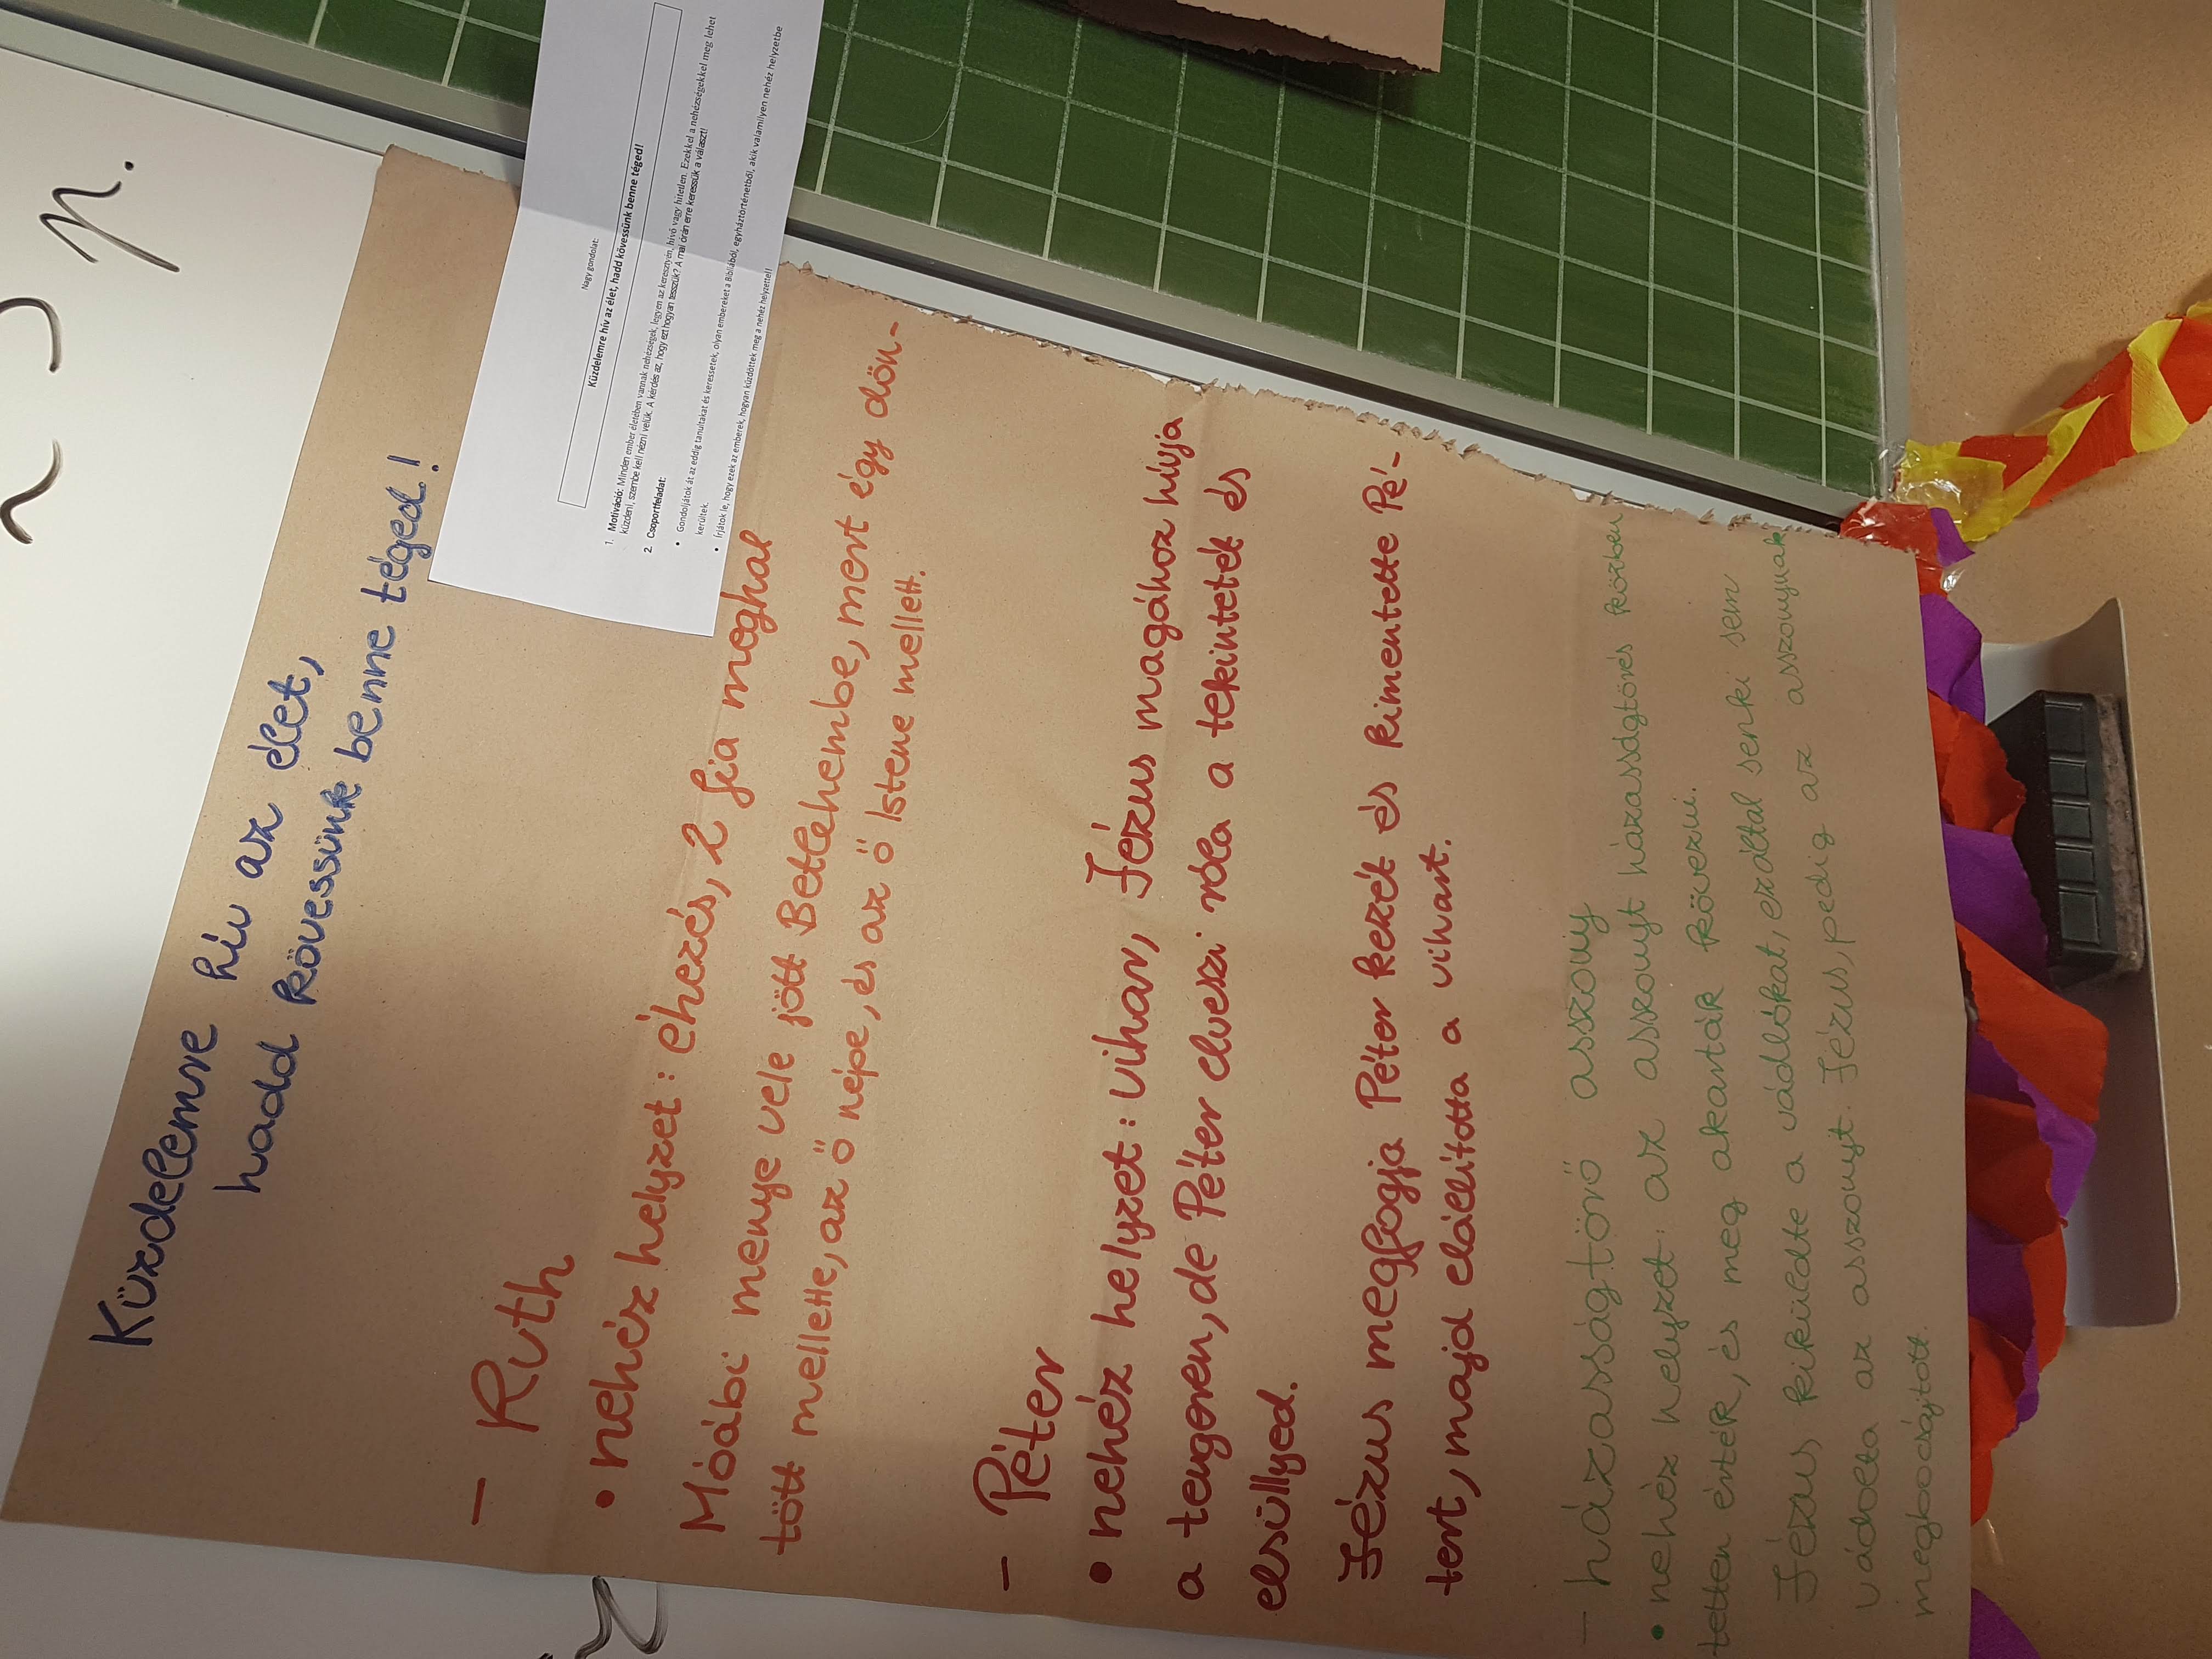 Küzdelemre hív az élet,
hadd kövessünk benne téged!
Nagy gondolat:
Küzdelemre hív az élet, hadd kövessünk benne téged!
1. Motiváció: Minden ember életében vannak nehézségek, legyen az keresztyén, hívő vagy hitetlen. Ezekkel a nehézségekkel meg lehet
küzdeni, szembe kell nézni velük. A kérdés az, hogy ezt hogyan tesszük? A mai órán erre keressük a választ!
2. Csoportfeladat:
• Gondoljátok át az eddig tanultakat és keressetek, olyan embereket a Bibliából, egyháztörténetből, akik valamilyen nehéz helyzetbe
kerültek.
• Írjátok le, hogy ezek az emberek, hogyan küzdöttek meg a nehéz helyzettel!
– Ruth
• nehéz helyzet: éhezés, 2 fia meghal
Móábi menye vele jött Betlehembe, mert égy dön-
tött mellette, az ő népe, és az ő Istene mellett.
– Péter
• nehéz helyzet: vihar, Jézus magához hívja
a tengeren, de Péter elveszi róla a tekintetét és
elsüllyed.
Jézus megfogja Péter kezét és kimentette Pé-
tert, majd elállította a vihart.
– házasságtörő asszony
• nehéz helyzet: az asszonyt házasságtörés közben
tetten érték, és meg akarták kövezni.
Jézus kiküldte a vádlókat, ezáltal senki sem
vádolta az asszonyt. Jézus, pedig az asszonynak
megbocsájtott.